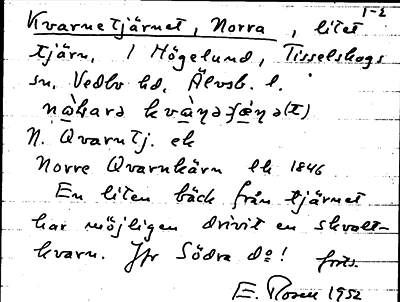 1-2
Kvarnetjärnet, Norra, litet
tjärn. / Högelund, Tisselskogs
sn. Vedbo hd. Älvsb. l.
N. Qvarntj. ek
Norre Qvarnkärn lk 1846
En liten bäck från tjärnet
har möjligen drivit en skvalt-
kvarn. Jfr Södra do! forts.
E. Rosen 1952